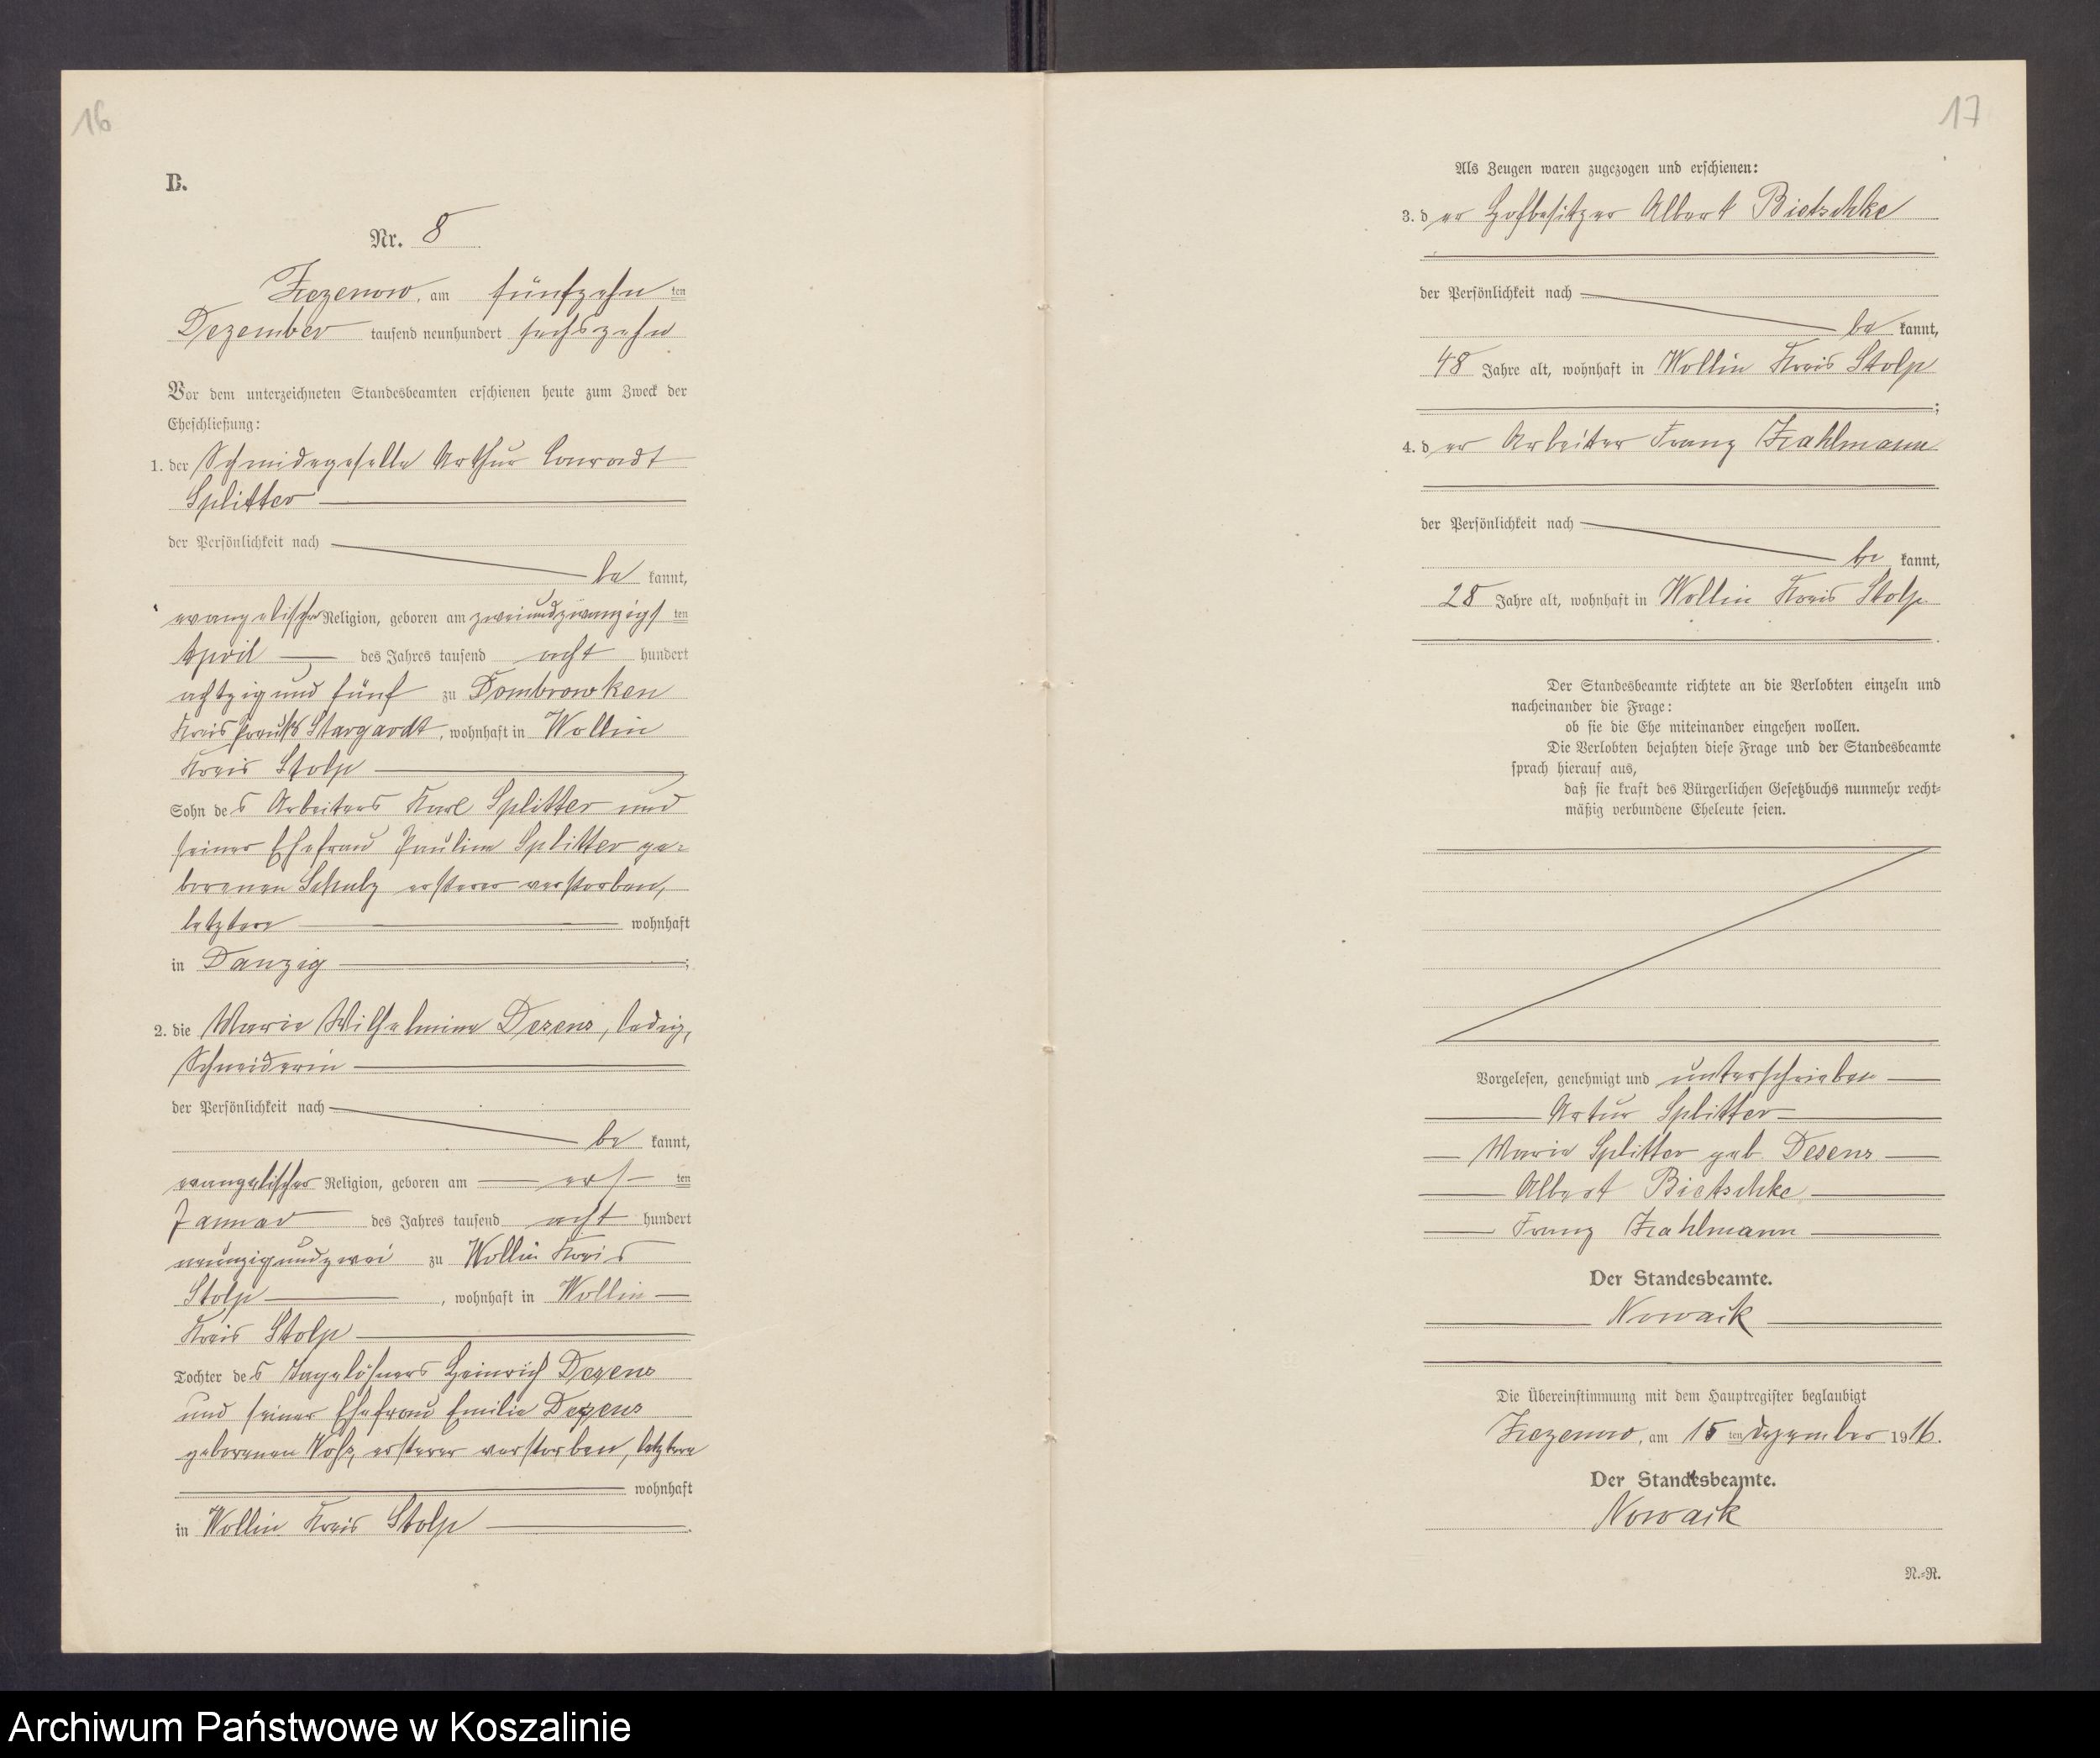 16
B.
Nr. 8
Zezenow, am fünfzehn ten
Dezember tausend neunhundert sechszehn
Vor dem unterzeichneten Standesbeamten erschienen heute zum Zweck der
Eheschließung:
1. der Schmidegeselle Arthur Conradt
Splitter
der Persönlichkeit nach
be kannt,
evangelischer Religion, geboren am zweiundzwanzigst ten
April des Jahres tausend acht hundert
achtzig und fünf zu Dombrowken
Kreis Preuß Stargardt, wohnhaft in Wollin
Kreis Stolp
Sohn des Arbeiters Karl Splitter und
seiner Ehefrau Pauline Splitter ge-
borenen Schulz ersterer verstorben,
letztere wohnhaft
in Danzig ;
2. die Marie Wilhelmine Dezens, ledig,
Schneiderin
der Persönlichkeit nach
be kannt,
evangelischer Religion, geboren am erst ten
Januar des Jahres tausend acht hundert
neunzig und zwei zu Wollin Kreis
Stolp , wohnhaft in Wollin
Kreis Stolp
Tochter des Tagelöhners Heinrich Dezens
und seiner Ehefrau Emilie Dezens
geborenen ersterer verstorben, letztere
wohnhaft
in Wollin Kreis Stolp .
17
Als Zeugen waren zugezogen und erschienen:
3. der Hofbesitzer Albert Bietschke
der Persönlichkeit nach
be kannt,
48 Jahre alt, wohnhaft in Wollin Kreis Stolp
;
4. der Arbeiter Franz Zahlmann
der Persönlichkeit nach
be kannt,
28 Jahre alt, wohnhaft in Wollin Kreis Stolp
.
Der Standesbeamte richtete an die Verlobten einzeln und
nacheinander die Frage:
ob sie die Ehe miteinander eingehen wollen.
Die Verlobten bejahten diese Frage und der Standesbeamte
sprach hierauf aus,
daß sie kraft des Bürgerlichen Gesetzbuchs nunmehr recht-
mäßig verbundene Eheleute seien.
Vorgelesen, genehmigt und unterschrieben
Artur Splitter
Marie Splitter geb. Desens
Albert Bietschke
Franz Zahlmann
Der Standesbeamte.
Nowack
Die Übereinstimmung mit dem Hauptregister beglaubigt
Zezenow, am 15 ten Dezember 1916.
Der Standesbeamte.
Nowack
N.-R.
Archiwum Państwowe w Koszalinie